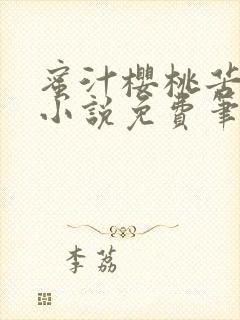 蜜汁櫻桃苦
小說免費筆
李荔